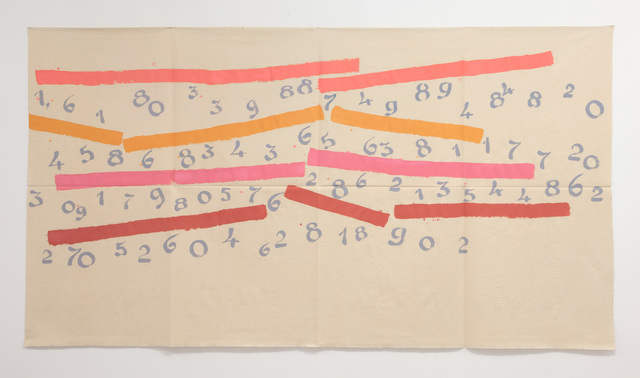 1 6 1 8 0 3 3 9 8 8 7 4 9 8 9 4 8 4 8 2 0
4 5 8 6 8 3 4 3 6 5 6 3 8 1 1 7 2 0
3 0 9 1 7 9 8 0 5 7 6 2 8 6 2 1 3 5 4 4 8 6 2
2 7 0 5 2 6 0 4 6 2 8 1 8 9 0 2